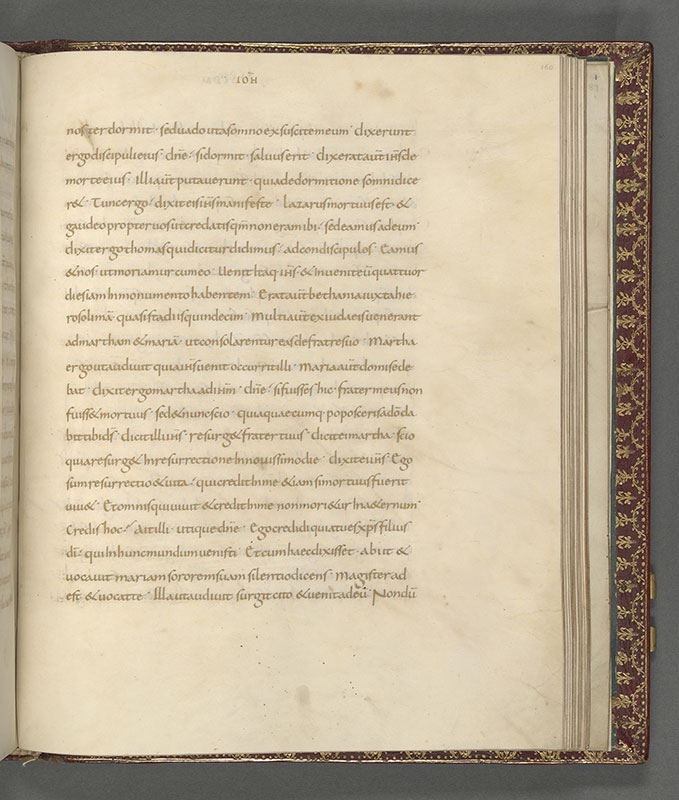 IOH̄
160
noster dormit · sed vado ut a somno exsuscitem eum · dixerunt
ergo discipuli eius · dn̄e · si dormit · salvus erit · dixerat aut̄ ih̄s de
morte eius · Illi aut̄ putaverunt · quia de dormitione somni dice
r& · Tunc ergo · dixit eis ih̄s manifeste · lazarus mortuus est · &
gaudeo propter vos ut credatis qm̄ non eram ibi · sed eamus ad eum ·
dixit ergo thomas qui dicitur didimus · ad condiscipulos · Eamus
& nos · ut moriamur cum eo · Uenit itaq ih̄s · & invenit eū quattuor
dies iam in monumento habentem · Erat aut̄ bethania iuxta hie
rosolimā quasi stadiis quindecim · Multi aut̄ ex iudaeis venerant
ad martham & mariā · ut consolarentur eas de fratre suo · Martha
ergo ut audivit quia ih̄s venit occurrit illi · Maria aut̄ domi sede
bat · dixit ergo martha ad ih̄m · dn̄e · si fuisses hic · frater meus non
fuiss& mortuus · sed & nunc scio · quia quaecumq · poposceris a dō da
bit tibi ds̄ · dicit illi ih̄s · resurg& frater tuus · dicit ei martha · scio
quia resurg& in resurrectione in novissimo die · dixit ei ih̄s · Ego
sum resurrectio & vita · qui credit in me &iam si mortuus fuerit
viv& · Et omnis qui vivit & credit in me non mori&ur in a&ernum ·
Credis hoc · Ait illi · utique dn̄e · Ego credidi quia tu es xp̄s filius
dī · qui in hunc mundum venisti · Et cum haec dixisset · abiit &
vocavit mariam sororem suam silentio dicens · Magister ad
est & vocat te · Illa ut audivit surgit cito & venit ad eū · Nondū